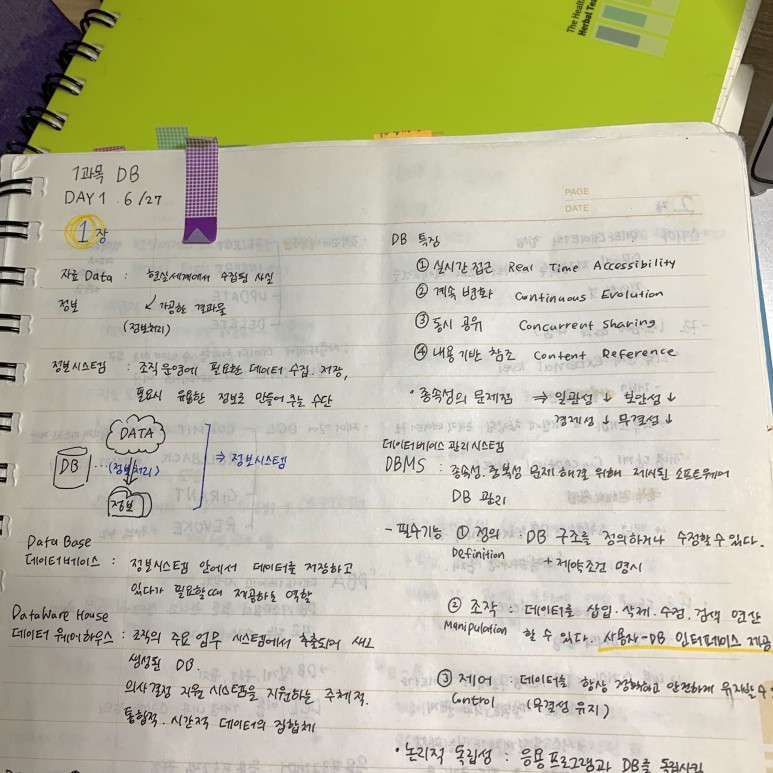 The Healthy
Herbal Tea
1과목 DB
DAY 1 6/27
1장
자료 Data : 현실세계에서 수집된 사실
정보 ↙ 가공한 결과물
(정보처리)
정보시스템 : 조직 운영에 필요한 데이터 수집. 저장,
필요시 유용한 정보로 만들어 주는 수단
DATA
DB ... (정보처리) ⇒ 정보시스템
정보
Data Base
데이터베이스 : 정보시스템 안에서 데이터를 저장하고
있다가 필요할때 제공하는 역할
DataWare House
데이터 웨어하우스 : 조직의 주요 업무 시스템에서 추출되어 새로
생성된 DB.
의사결정 지원 시스템을 지원하는 주체적.
통합적. 시간적 데이터의 집합체
PAGE
DATE
DB 특징
① 실시간 접근 Real Time Accessibility
② 계속 변화 Continuous Evolution
③ 동시 공유 Concurrent Sharing
④ 내용 기반 참조 Content Reference
• 종속성의 문제점 ⇒ 일관성 ↓ 보안성 ↓
경제성 ↓ 무결성 ↓
데이터베이스 관리 시스템
DBMS : 종속성. 중복성 문제 해결 위해 제시된 소프트웨어
DB 관리
- 필수기능 ① 정의 : DB 구조를 정의하거나 수정할 수 있다.
Definition + 제약조건 명시
② 조작 : 데이터를 삽입. 삭제. 수정. 검색 연산
Manipulation 할 수 있다. 사용자-DB 인터페이스 제공
③ 제어 : 데이터를 항상 정확하고 안전하게 유지할 수
Control (무결성 유지)
• 논리적 독립성 : 응용프로그램과 DB를 독립시킴